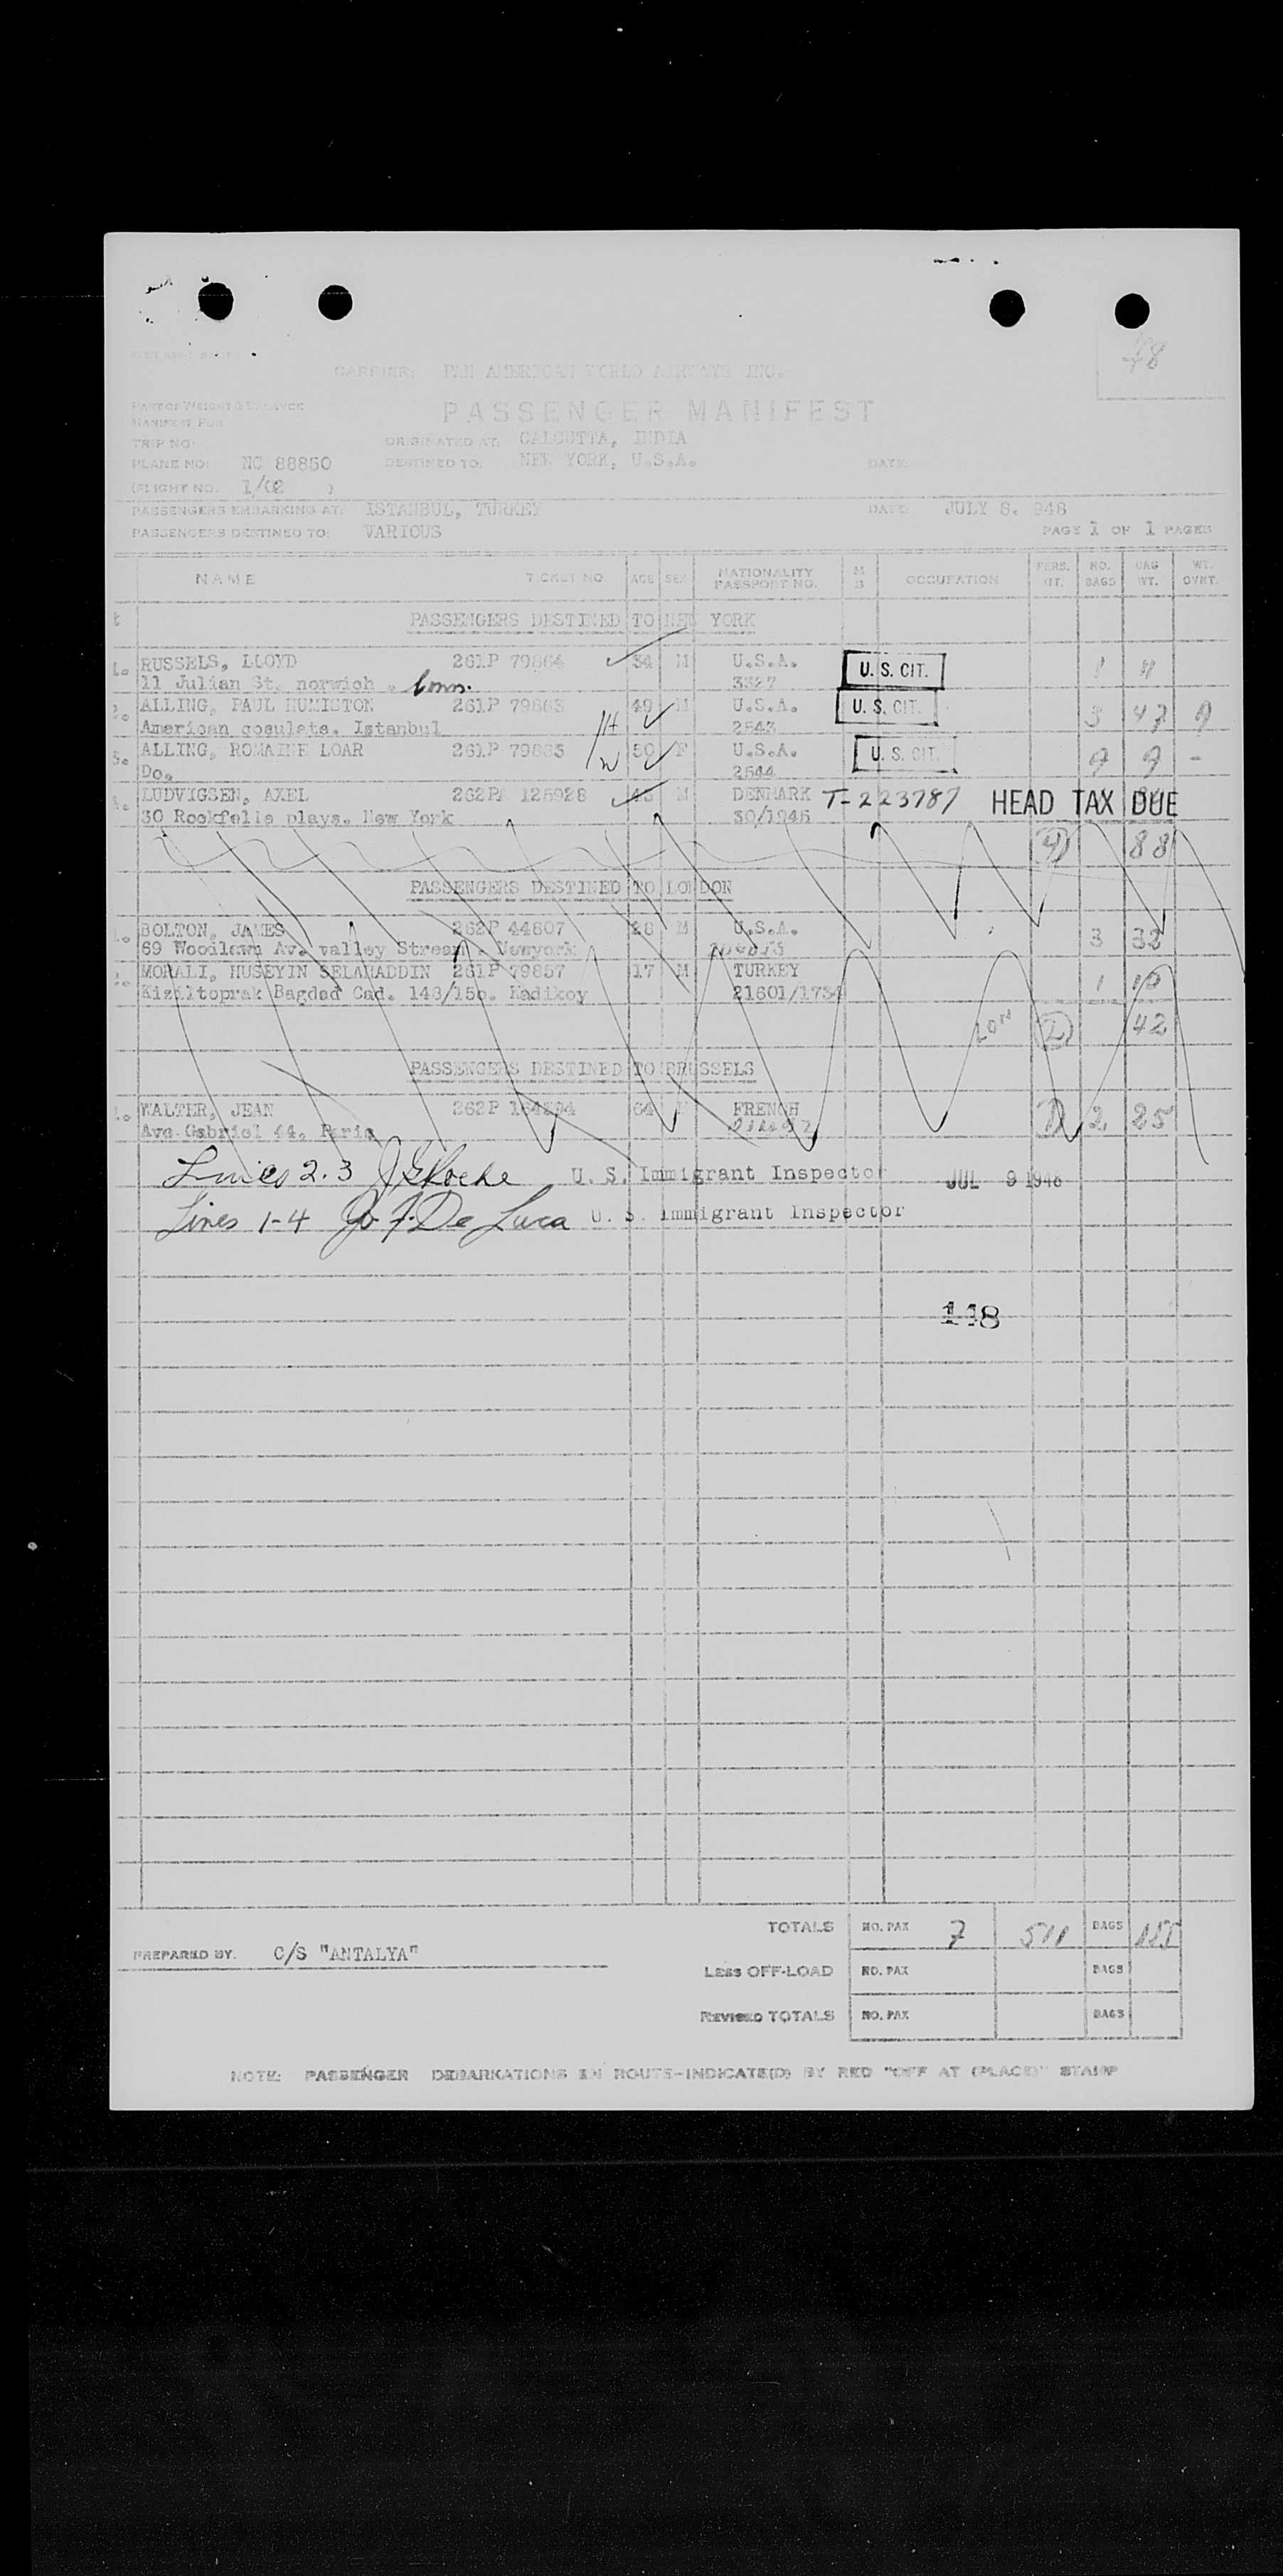 78
CARRIER: PAN AMERICAN WORLD AIRWAYS INC.
PART OF WEIGHT & BALANCE
MANIFEST FOR
PASSENGER MANIFEST
TRIP NO:
ORIGINATED AT: CALCUTTA, INDIA
PLANE NO: NC 88850
DESTINED TO: NEW YORK, U.S.A.
DATE:
(FLIGHT NO. 1/02 )
PASSENGERS EMBARKING AT: ISTANBUL, TURKEY DATE: JULY 8. 948
PASSENGERS DESTINED TO: VARIOUS PAGE 1 OF 1 PAGES
NAME TICKET NO AGE SEX NATIONALITY PASSPORT NO. M S OCCUPATION PERS. WT. NO. BAGS BAG WT. WT. OVWT.
PASSENGERS DESTINED TO NEW YORK
RUSSELS, LLOYD 261P 79864 34 M U.S.A. U. S. CIT. 1
11 Julian St. norwich . Conn. 3327
ALLING, PAUL HUMISTON 261P 79863 49 M U.S.A. U. S. CIT. 3 47 9
American cosulate. Istanbul H 2543
ALLING, ROMAINE LOAR 261P 79865 50 F U.S.A. U. S. CIT. 9 9 -
Do. W 2544
LUDVIGSEN, AXEL 262PA 125928 43 M DENMARK T-223787 HEAD TAX DUE
30 Rockfelle plays. New York 30/1946
4 88
PASSENGERS DESTINED TO LONDON
BOLTON, JAMES 262P 44807 28 M U.S.A. 3 32
69 Woodlawn Av. valley Stream . Newyork
MORALI, HUSEYIN SELAHADDIN 261P 79857 17 M TURKEY 1 10
Kiziltoprak Bagdad Cad. 148/150. Kadikoy 21601/1734
LON 2 42
PASSENGERS DESTINED TO BRUSSELS
WALTER, JEAN 262P 64 FRENCH 1 2 25
Ave Gabriel 44. Paris
Lines 2.3 J G Roche U. S. Immigrant Inspector JUL 9 1948
Lines 1-4 Jo. F. De Luca U. S. Immigrant Inspector
148
TOTALS NO. PAX 7 511 BAGS 155
PREPARED BY: C/S "ANTALYA"
LESS OFF-LOAD NO. PAX BAGS
REVISED TOTALS NO. PAX BAGS
NOTE: PASSENGER DEBARKATIONS EN ROUTE-INDICATE(D) BY RED "OFF AT (PLACE)" STAMP